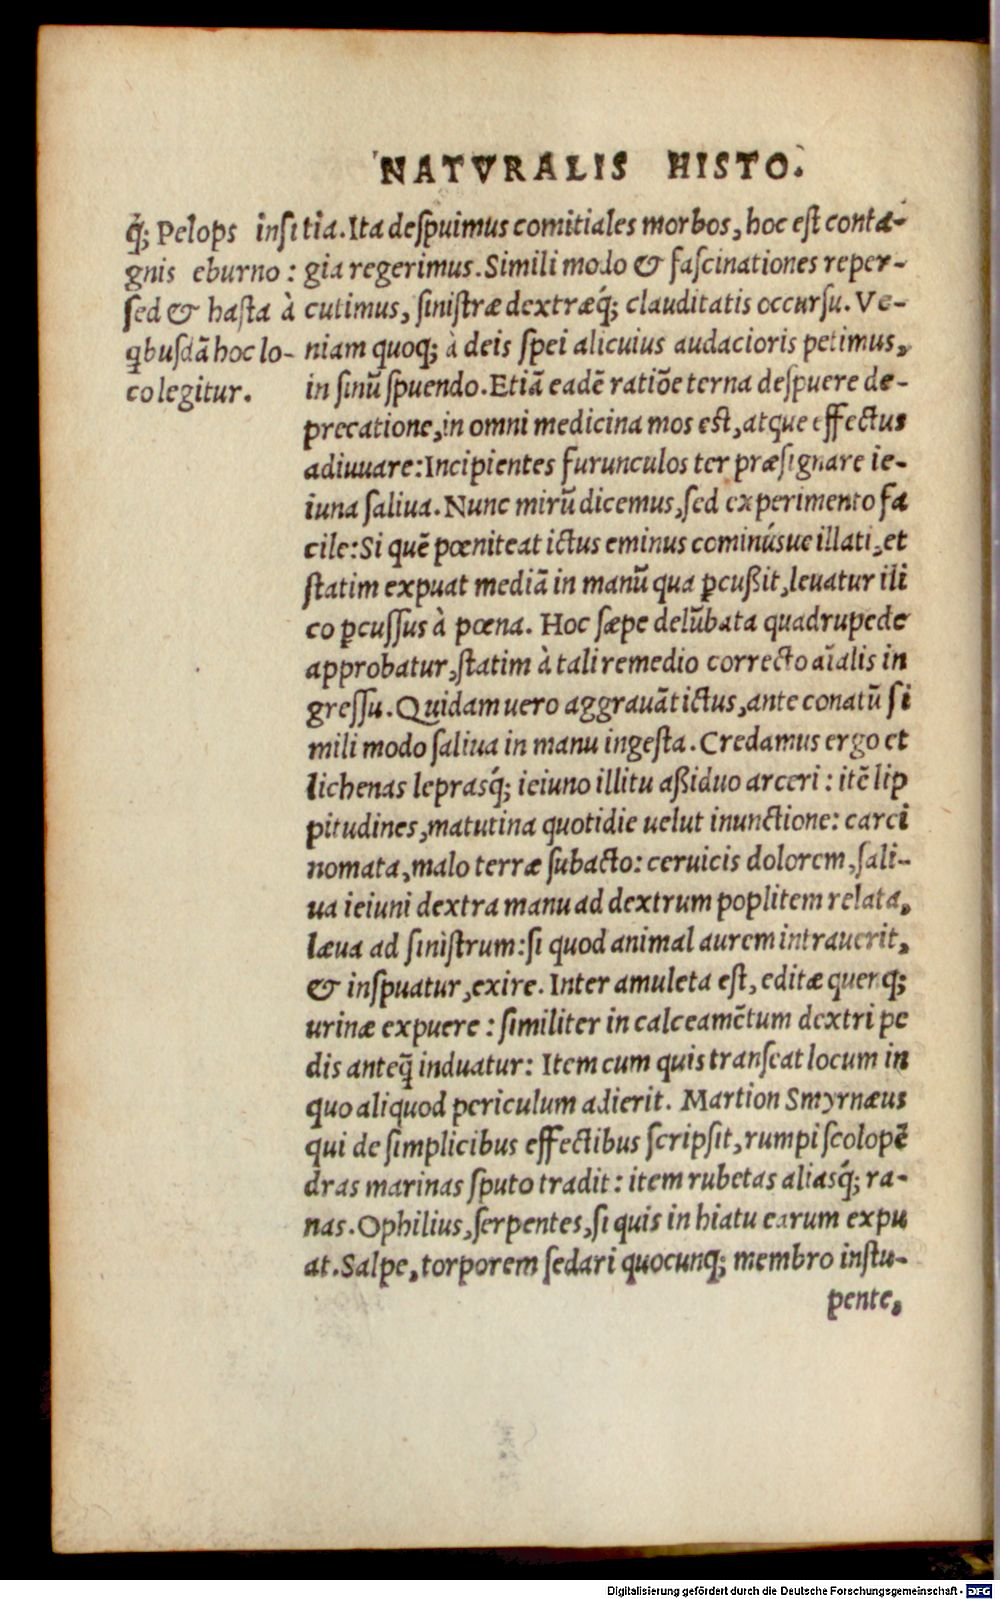 NATVRALIS HISTO.
q́; Pelops insi
gnis eburno:
sed & hasta à
q̃busdã hoc lo-
co legitur.
tia. Ita despuimus comitiales morbos, hoc est conta-
gia regerimus. Simili modo & fascinationes reper-
cutimus, sinistræ dextræq́; clauditatis occursu. Ve-
niam quoq; à deis spei alicuius audacioris petimus,
in sinũ spuendo. Etiã eadẽ ratiõe terna despuere de-
precatione, in omni medicina mos est, atque effectus
adiuuare: Incipientes furunculos ter præsignare ie-
iuna saliua. Nunc mirũ dicemus, sed experimento fa
cile: Si quẽ pœniteat ictus eminus cominúsue illati, et
statim expuat mediã in manũ qua ꝑcußit, leuatur ili
co ꝑcussus à pœna. Hoc sæpe delũbata quadrupede
approbatur, statim à tali remedio correcto aĩalis in
gressu. Quidam uero aggrauãt ictus, ante conatũ si
mili modo saliua in manu ingesta. Credamus ergo et
lichenas leprasq́; ieiuno illitu aßiduo arceri: itẽ lip
pitudines, matutina quotidie uelut inunctione: carci
nomata, malo terræ subacto: ceruicis dolorem, sali-
ua ieiuni dextra manu ad dextrum poplitem relata,
læua ad sinistrum: si quod animal aurem intrauerit,
& inspuatur, exire. Inter amuleta est, editæ quenq;
urinæ expuere: similiter in calceamẽtum dextri pe
dis anteq̃ induatur: Item cum quis transeat locum in
quo aliquod periculum adierit. Martion Smyrnæus
qui de simplicibus effectibus scripsit, rumpi scolopẽ
dras marinas sputo tradit: item rubetas aliasq́; ra-
nas. Ophilius, serpentes, si quis in hiatu earum expu
at. Salpe, torporem sedari quocunq; membro instu-
pente,
Digitalisierung gefördert durch die Deutsche Forschungsgemeinschaft - DFG